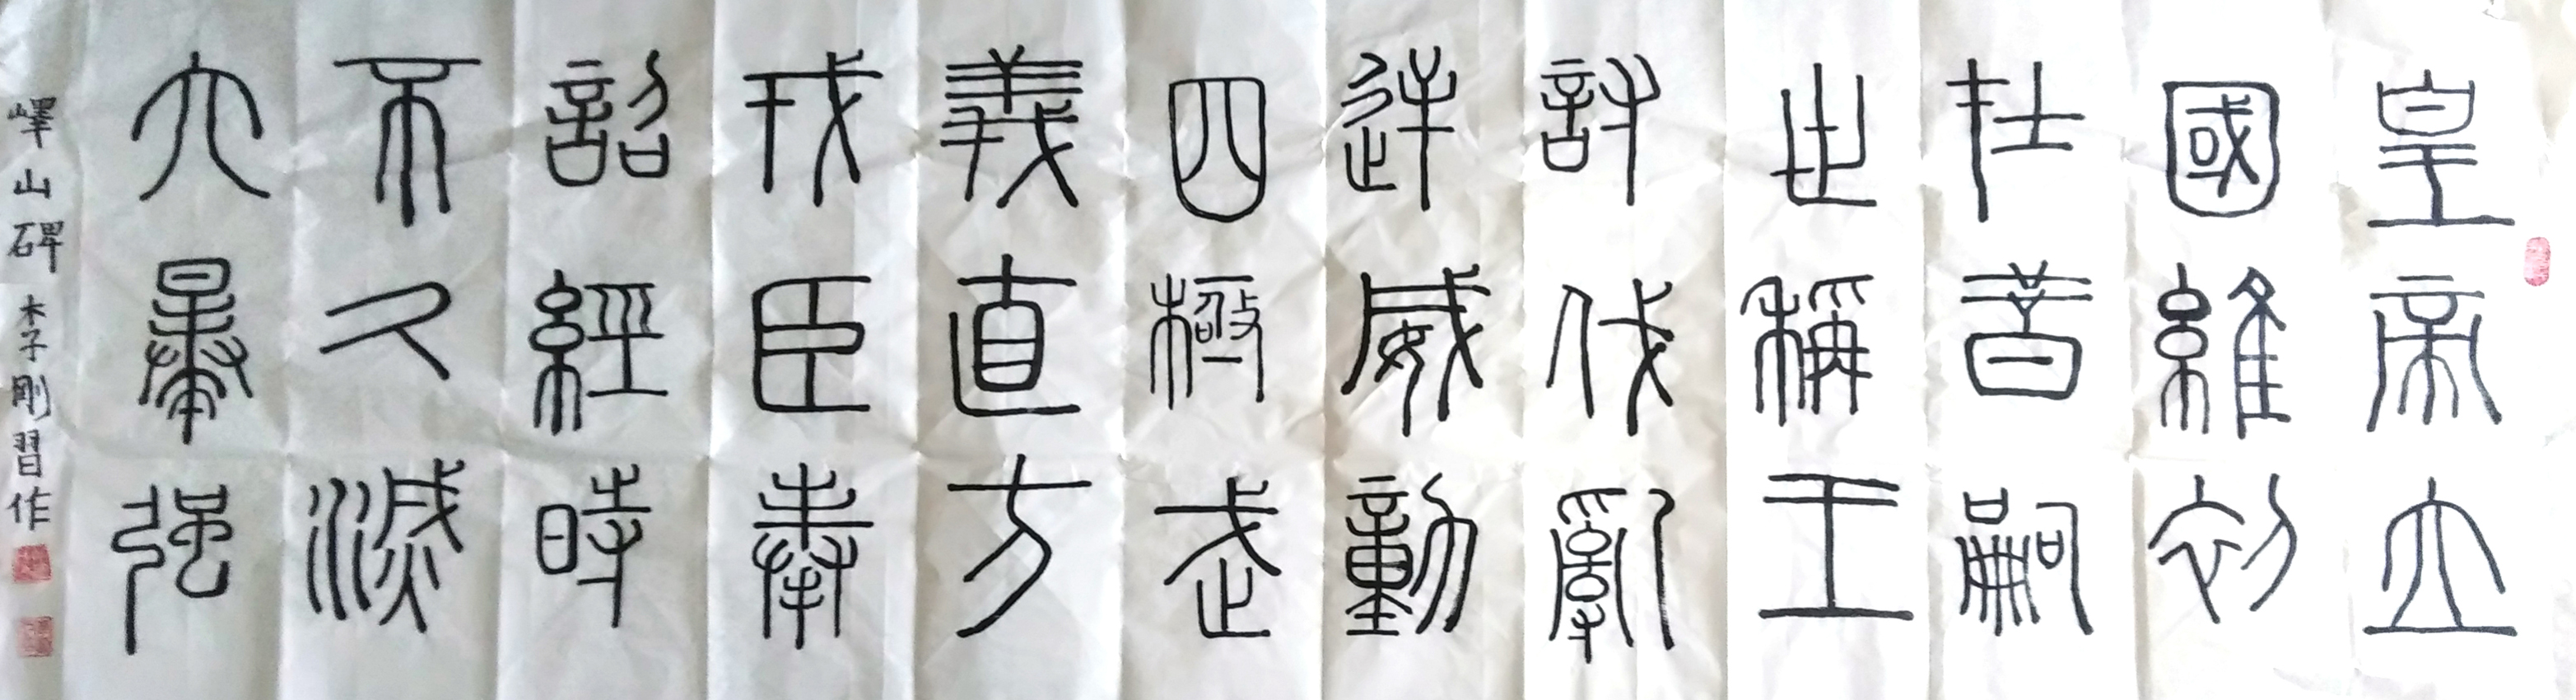 皇帝立
國維初
在昔嗣
世稱王
討伐亂
逆威動
四極武
義直方
戎臣奉
詔經時
不久滅
六暴强
嶧山碑 李剛習作